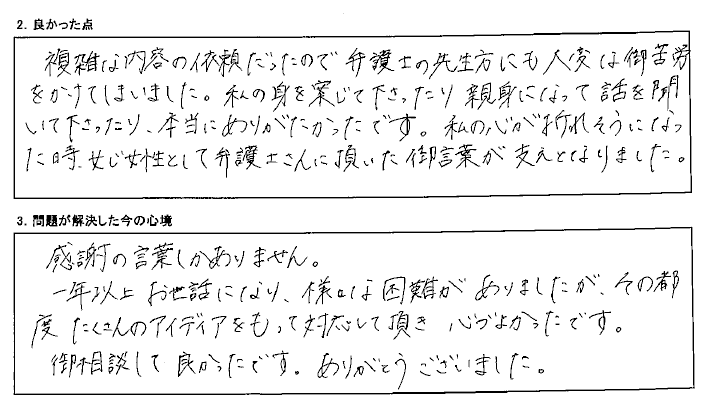 2. 良かった点
複雑な内容の依頼だったので弁護士の先生方にも大変な御苦労
をかけてしまいました。私の身を案じて下さったり親身になって話を聞
いて下さったり、本当にありがたかったです。私の心が折れそうになっ
た時、同じ女性として弁護士さんに頂いた御言葉が支えとなりました。
3. 問題が解決した今の心境
感謝の言葉しかありません。
一年以上お世話になり、様々な困難がありましたが、その都
度たくさんのアイディアをもって対応して頂き心づよかったです。
御相談して良かったです。ありがとうございました。